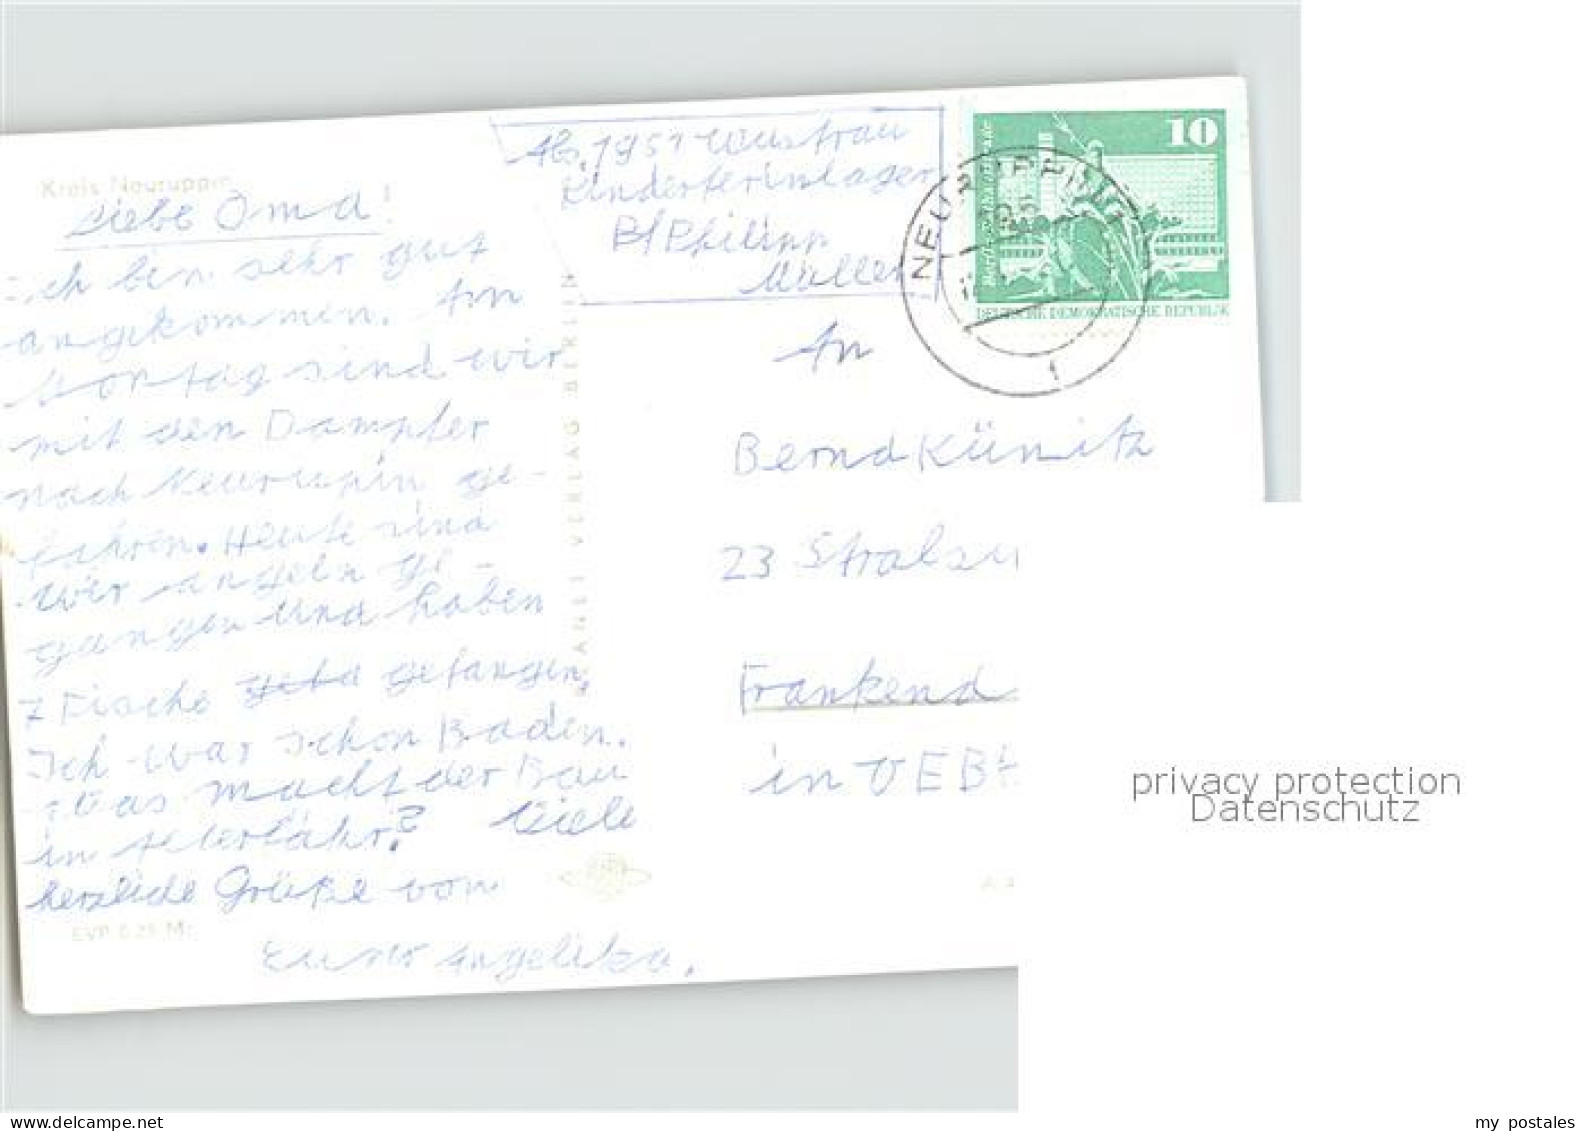 Kreis Neuruppin
Liebe Oma!
Ich bin sehr gut
angekommen. Am
sind wir
mit den Dampfer
nach Neurupin ge-
fahren. Heute sind
wir angeln ge-
gangen und haben
7 Fische gefangen.
Ich war schon Baden.
Was macht der Bau
in ? Viele
herzliche Grüße von
Eure Angelika.
EVP 0,25 M
PLANET VERLAG BERLIN
Ab. 1951 Wustrau
Kinderferinlager
B/Philipp
Müller
10
DEUTSCHE DEMOKRATISCHE REPUBLIK
NEURUPPIN
1
An
Bernd Künitz
23 Stralsu
Frankend
in VEB
privacy protection
Datenschutz
my postales